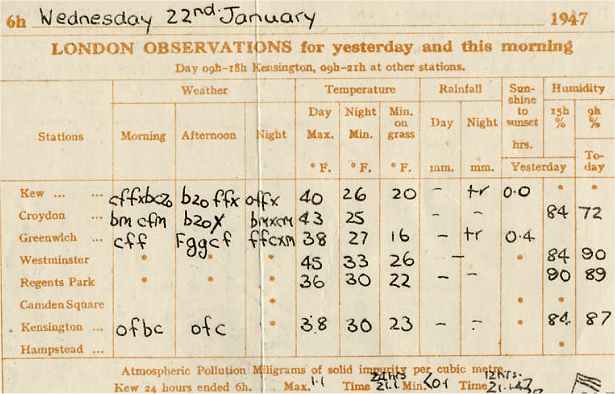 6h Wednesday 22nd. January 1947
LONDON OBSERVATIONS for yesterday and this morning
Day 09h-18h Kensington, 09h-21h at other stations.
Stations Weather Temperature Rainfall Sunshine to sunset Humidity
Morning Afternoon Night Day Max. Night Min. Min. on grass Day Night hrs. 15h % 9h %
° F. ° F. ° F. mm. mm. Yesterday To-day
Kew ... ... cffxbczo bzoffx offx 40 26 20 - tr 0.0 • •
Croydon ... bmcfm bzox bmxcm 43 25 - - 84 72
Greenwich ... cff Fggcf ffcxm 38 27 16 - tr 0.4 • •
Westminster • • • 45 33 26 - • 84 90
Regents Park • • • 36 30 22 - - • 90 89
Camden Square • • •
Kensington ... ofbc ofc • 38 30 23 - - 84 87
Hampstead ... •
Atmospheric Pollution Milligrams of solid impurity per cubic metre.
Kew 24 hours ended 6h. Max. 1.1 Time 21.1 Min. <0.1 Time 12hrs. 21.1.47